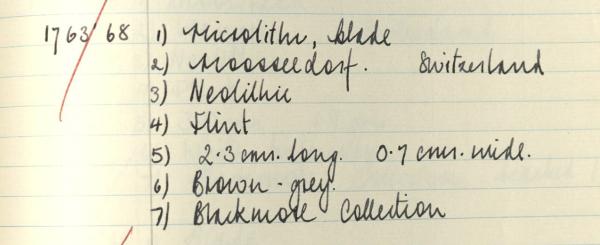 1763/68 1) Microlithic, blade
2) Moosseedorf. Switzerland
3) Neolithic
4) Flint
5) 2.3 cms. long. 0.7 cms. wide.
6) Brown - grey.
7) Blackmore Collection